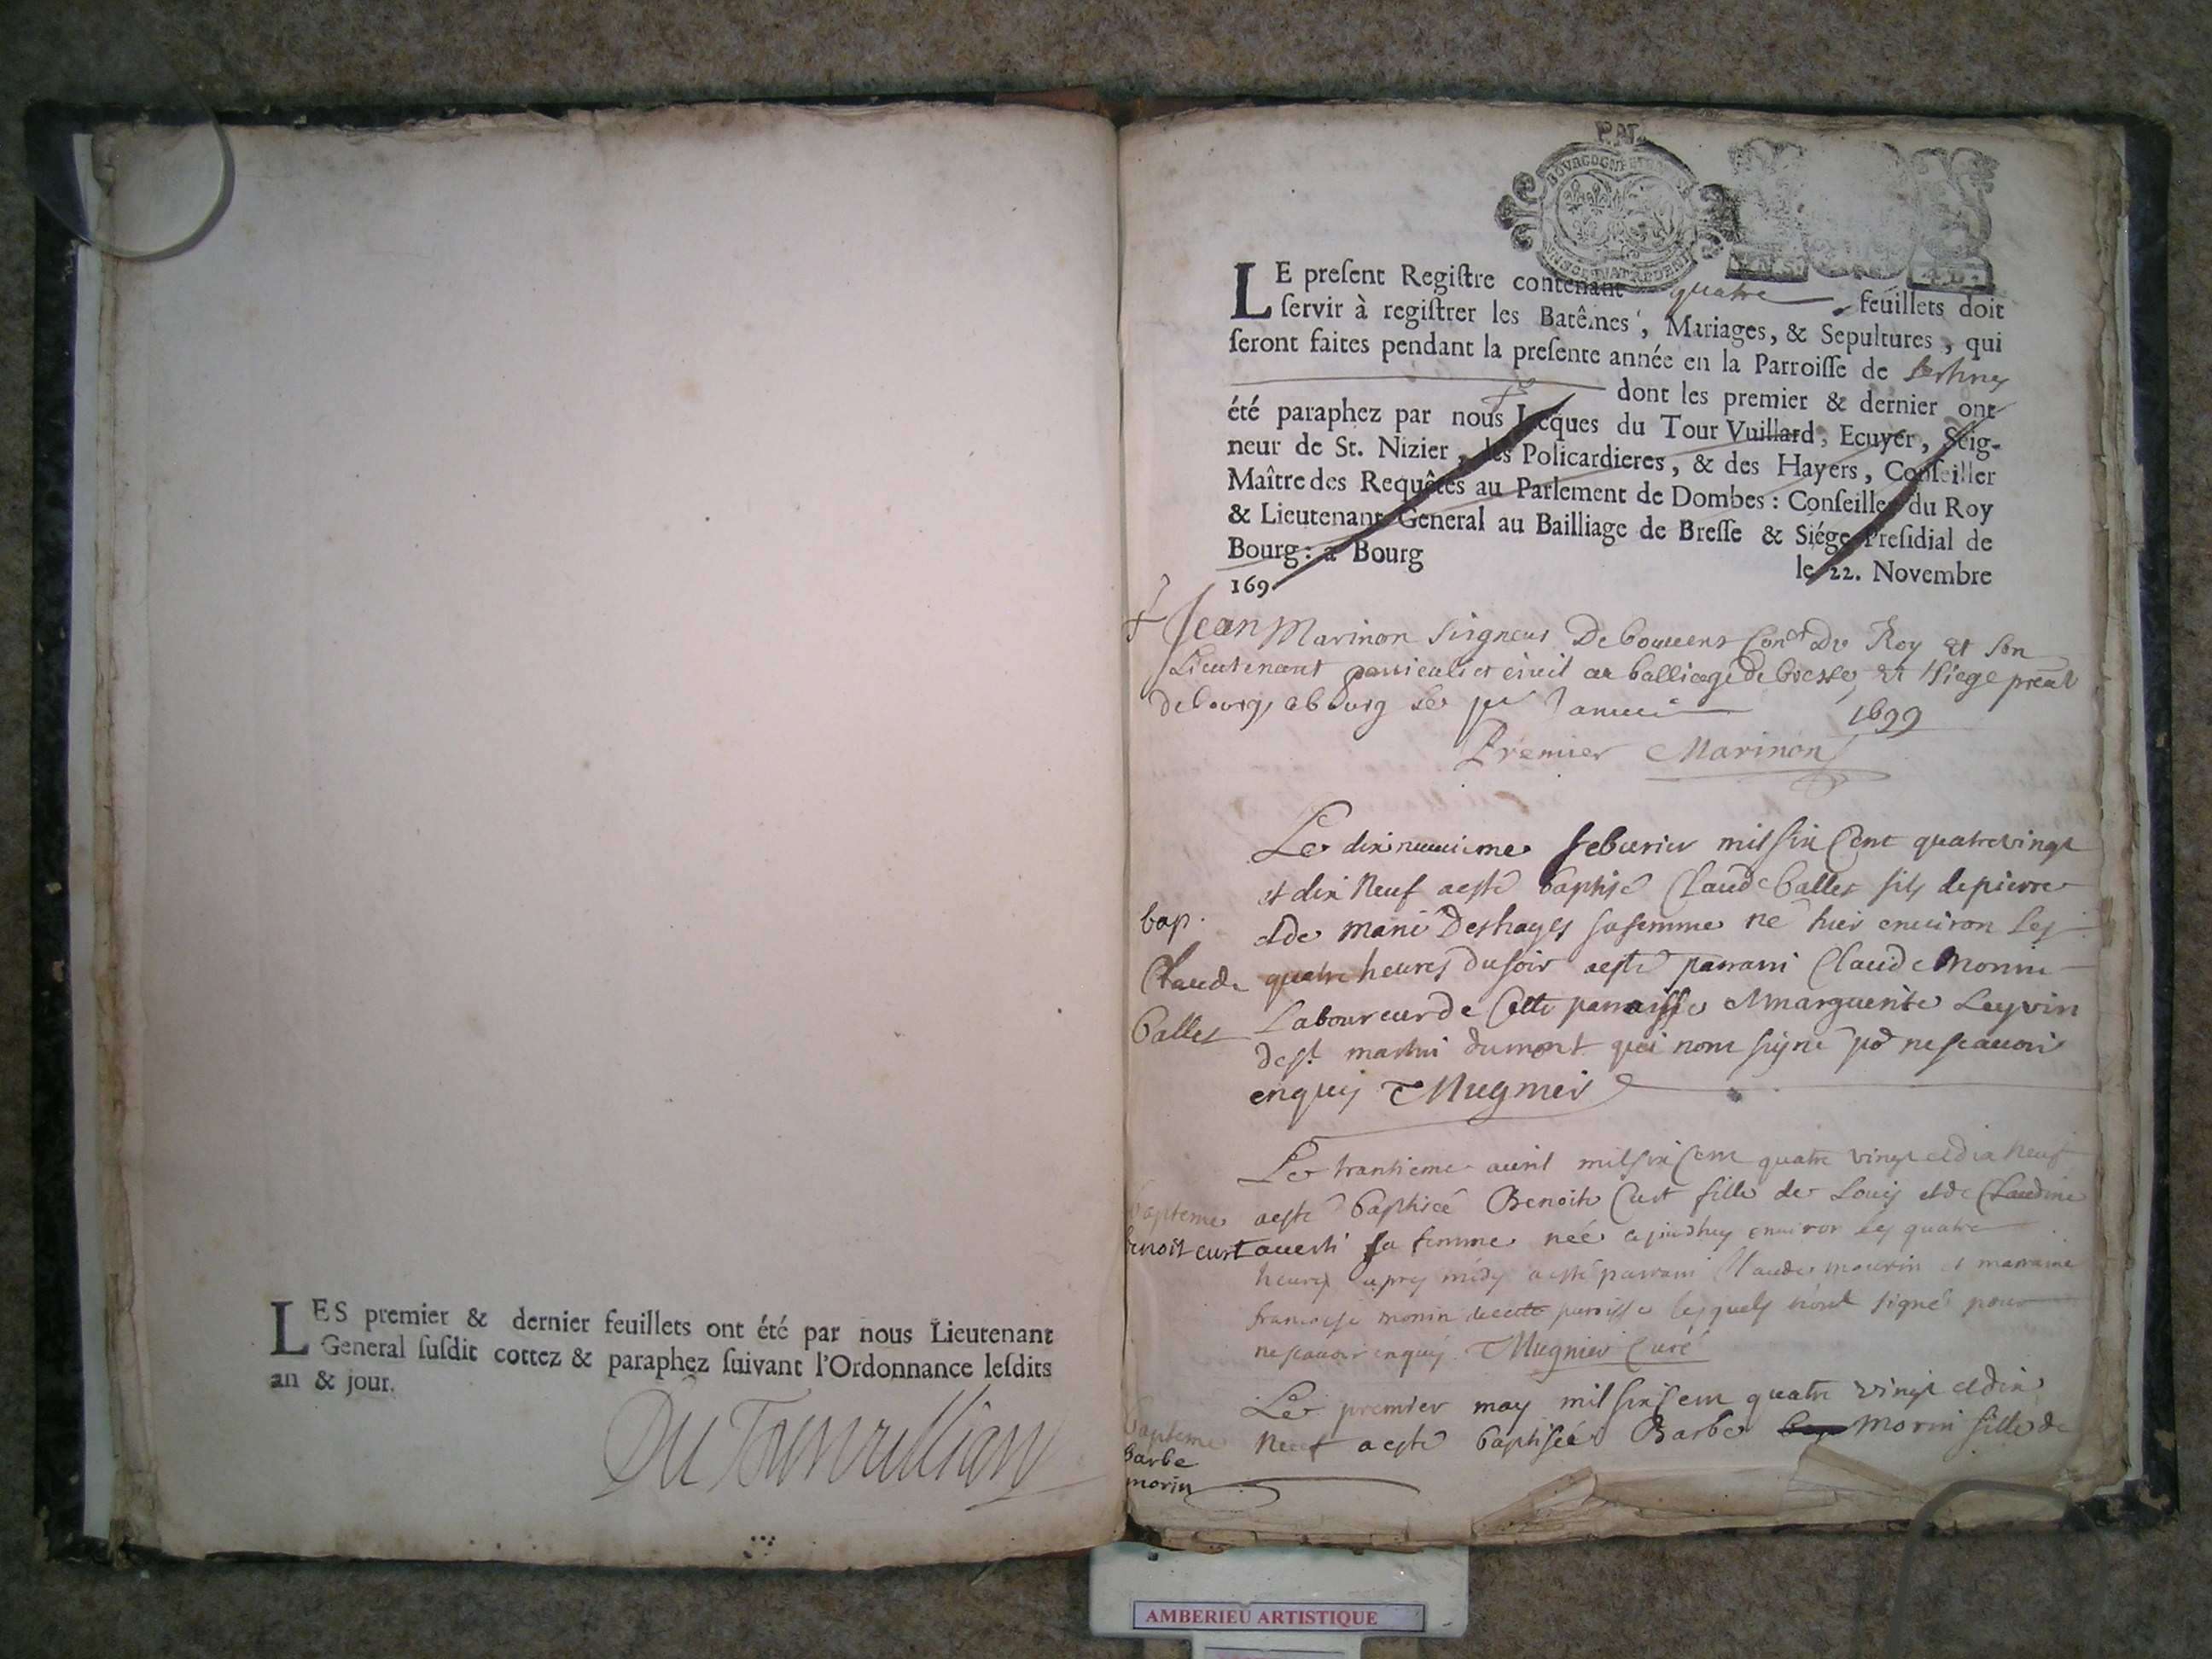 LES premier & dernier feuillets ont été par nous Lieutenant
General susdit cottez & paraphez suivant l'Ordonnance lesdits
an & jour.
BOURGOGNE
LE present Registre contenant quatre feuillets doit
servir à registrer les Batêmes, Mariages, & Sepultures, qui
seront faites pendant la presente année en la Parroisse de
dont les premier & dernier ont
été paraphez par nous Jacques du Tour Vuillard, Ecuyer, Seig-
neur de St. Nizier, des Policardieres, & des Hayers, Conseiller
Maître des Requêtes au Parlement de Dombes: Conseiller du Roy
& Lieutenant General au Bailliage de Bresse & Siége Presidial de
Bourg: à Bourg
le 22. Novembre
169
Jean Marinon Seigneur De Con.er Du Roy et son
Lieutenant et civil au balliage de bresse et siege
de bourg, a bourg le
1699
Premier Marinon
Le dixneuuieme feburier mil six Cent quatre vingt
et dix Neuf a esté baptisé Claude Ballet fils de pierre
et de marie Deshayes sa femme né hier enuiron les
quatre heures du soir a esté parrain Claude Monin
Laboureur de Cette parroisse et marguerite Leyvin
de s.t martin du mont qui nont signé po.r ne scauoir
enquis Mugnier
bap.
Claude
Ballet
Le trantieme auril mil six Cent quatre vingt et dix neuf
a esté baptisée Benoite Curt fille de Louis et de Claudine
sa femme née ce jourdhuy enuiron les quatre
heures apres midy a esté parrain Claude et marraine
francoise monin de cette paroisse lesquels nont signé pour
ne scauoir enquis. Mugnier Curé
bapteme
benoit curt
Le premier may mil six Cent quatre vingt et dix
Neuf a esté baptisée Barbe morin fille de
bapteme
Barbe
morin
AMBERIEU ARTISTIQUE